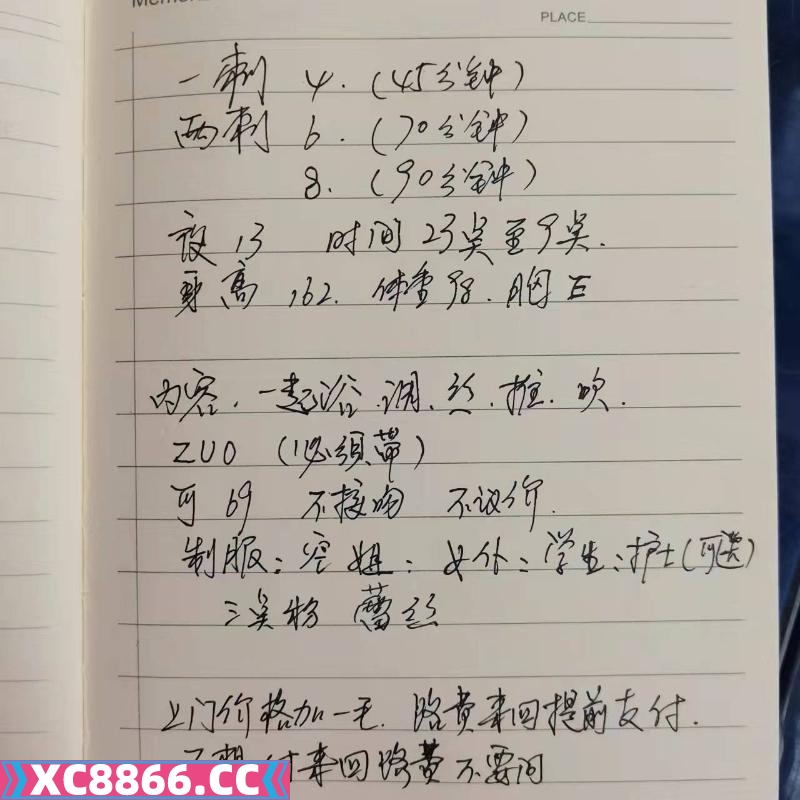 Memor
PLACE
一刺 4. (45分钟)
两刺 6. (70分钟)
8. (90分钟)
夜 13 时间 23点至9点.
身高 162. 体重98. 胸E
内容. 一起浴.调.丝.推.吹.
ZUO (必须带)
可69 不接吻 不议价.
制服:空姐:女仆:学生:护士(可选)
三点粉 蕾丝
上门价格加一毛. 路费来回提前支付.
不想付来回路费不要问
XC8866.CC